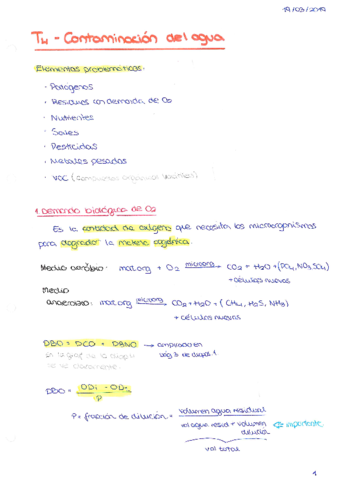 19/03/2019
T4 - Contaminación del agua
Elementos problemáticos:
· Patógenos
· Residuos con demanda de O2
· Nutrientes
· Sales
· Pesticidas
· Metales pesados
· VOC (Compuestos orgánicos volátiles)
1. Demanda biológica de O2
Es la cantidad de oxígeno que necesita los microorganismos
para degradar la materia orgánica.
Medio aeróbico: mat.org + O2 microorg → CO2 + H2O + (PO4, NO3, SO4)
+ células nuevas
Medio
anaerobio: mat.org microorg → CO2 + H2O + (CH4, H2S, NH3)
+ células nuevas
DBO = DCO + DBNO → ampliado en
en la graf de la diapo
DBO = ODi - ODf / P
P = fracción de dilución = volumen agua residual / vol agua resid + volumen dilución ⇐ importante
vol total
1